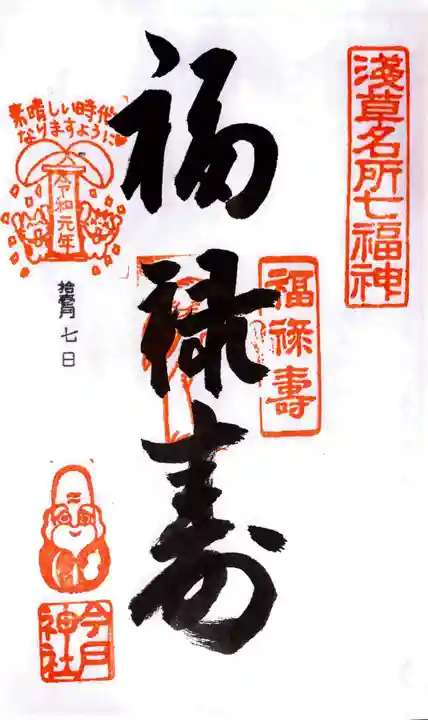 淺草名所七福神
福祿壽
福禄寿
素晴しい時代に
なりますように
令和元年
拾壱月 七日
今戸
神社